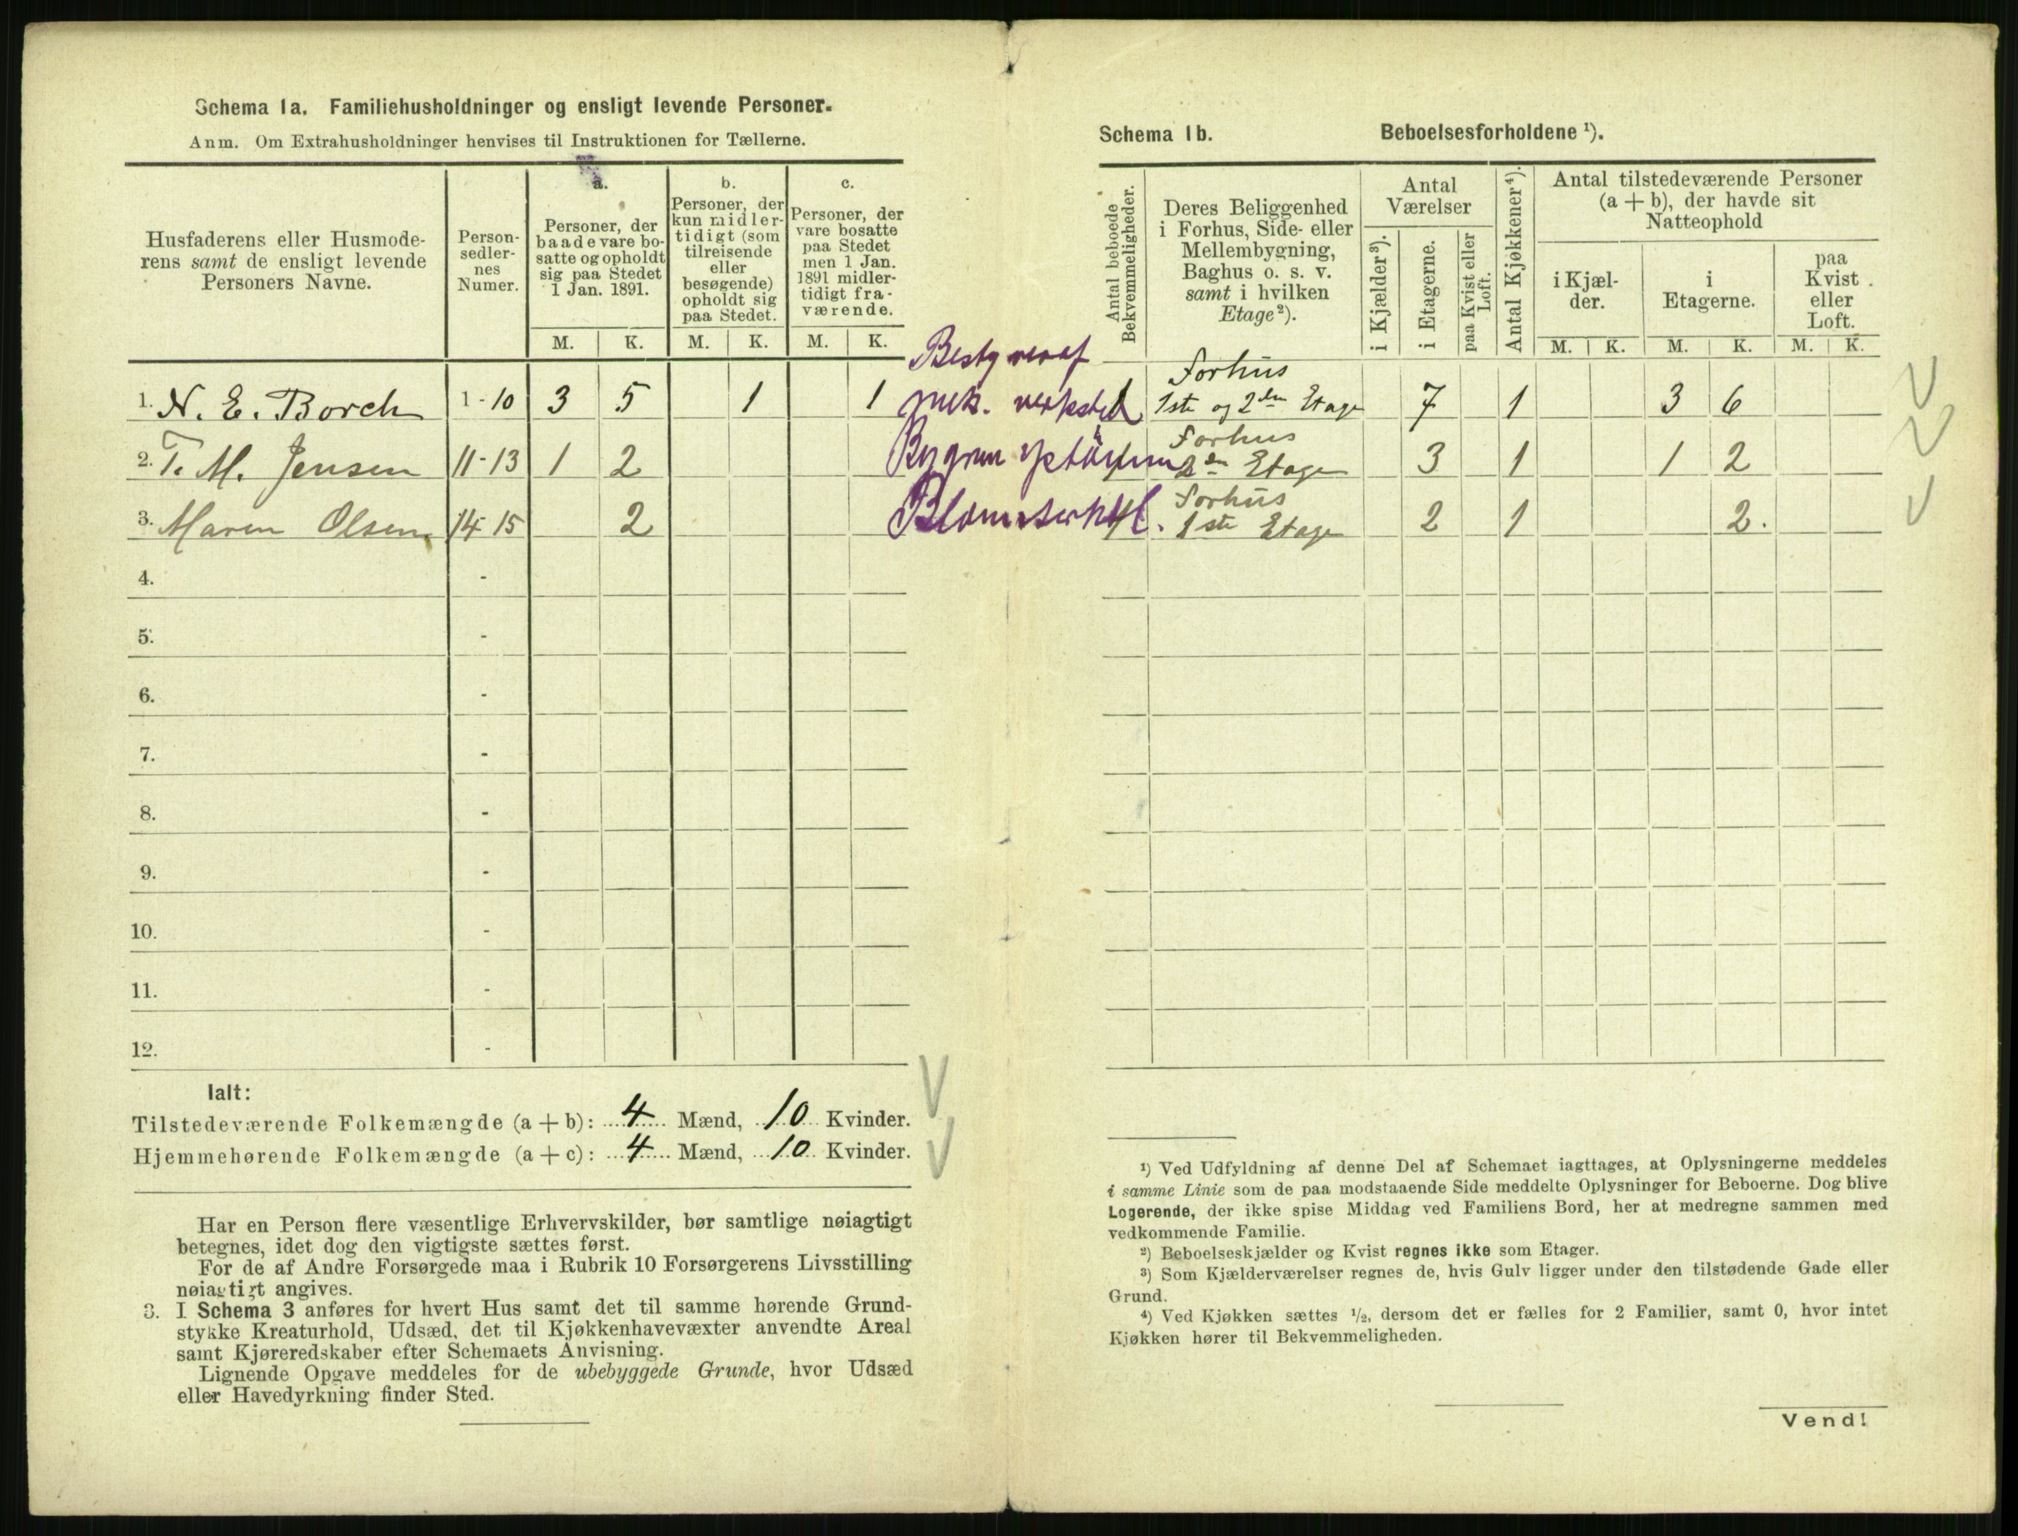 Schema 1a. Familiehusholdninger og ensligt levende Personer.
Anm. Om Extrahusholdninger henvises til Instruktionen for Tællerne.
Husfaderens eller Husmode-
rens samt de ensligt levende
Personers Navne.
Person-
sedler-
nes
Numer.
a.
Personer, der
baade vare bo-
satte og opholdt
sig paa Stedet
1 Jan. 1891.
b.
Personer, der
kun midler-
tidigt (som
tilreisende
eller
besøgende)
opholdt sig
paa Stedet.
c.
Personer, der
vare bosatte
paa Stedet
men 1 Jan.
1891 midler-
tidigt fra-
værende.
M. K. M. K. M. K.
1. N. E. Borch 1-10 3 5 1 1
2. T. M. Jensen 11-13 1 2
3. Maren Olsen 14-15 2
4. -
5. -
6. -
7. -
8. -
9. -
10. -
11. -
12. -
Ialt:
Tilstedeværende Folkemængde (a + b): 4 Mænd, 10 Kvinder.
Hjemmehørende Folkemængde (a + c): 4 Mænd, 10 Kvinder.
Har en Person flere væsentlige Erhvervskilder, bør samtlige nøiagtigt
betegnes, idet dog den vigtigste sættes først.
For de af Andre Forsørgede maa i Rubrik 10 Forsørgerens Livsstilling
nøiagtigt angives.
3. I Schema 3 anføres for hvert Hus samt det til samme hørende Grund-
stykke Kreaturhold, Udsæd, det til Kjøkkenhavevæxter anvendte Areal
samt Kjøreredskaber efter Schemaets Anvisning.
Lignende Opgave meddeles for de ubebyggede Grunde, hvor Udsæd
eller Havedyrkning finder Sted.
Schema 1b. Beboelsesforholdene ¹).
Antal beboede
Bekvemmeligheder.
Deres Beliggenhed
i Forhus, Side- eller
Mellembygning,
Baghus o. s. v.
samt i hvilken
Etage²).
Antal
Værelser
i Kjælder³).
i Etagerne.
paa Kvist eller
Loft.
Antal Kjøkkener⁴).
Antal tilstedeværende Personer
(a + b), der havde sit
Natteophold
i Kjæl-
der.
i
Etagerne.
paa
Kvist
eller
Loft.
M. K. M. K. M. K.
Bestyrer af
mek. verksted
1 Forhus
1ste og 2den Etage 7 1 3 6
Forhus
2den Etage 3 1 1 2
Forhus
1ste Etage 2 1 2.
¹) Ved Udfyldning af denne Del af Schemaet iagttages, at Oplysningerne meddeles
i samme Linie som de paa modstaaende Side meddelte Oplysninger for Beboerne. Dog blive
Logerende, der ikke spise Middag ved Familiens Bord, her at medregne sammen med
vedkommende Familie.
²) Beboelseskjælder og Kvist regnes ikke som Etager.
³) Som Kjælderværelser regnes de, hvis Gulv ligger under den tilstødende Gade eller
Grund.
⁴) Ved Kjøkken sættes ¹/₂, dersom det er fælles for 2 Familier, samt 0, hvor intet
Kjøkken hører til Bekvemmeligheden.
Vend!